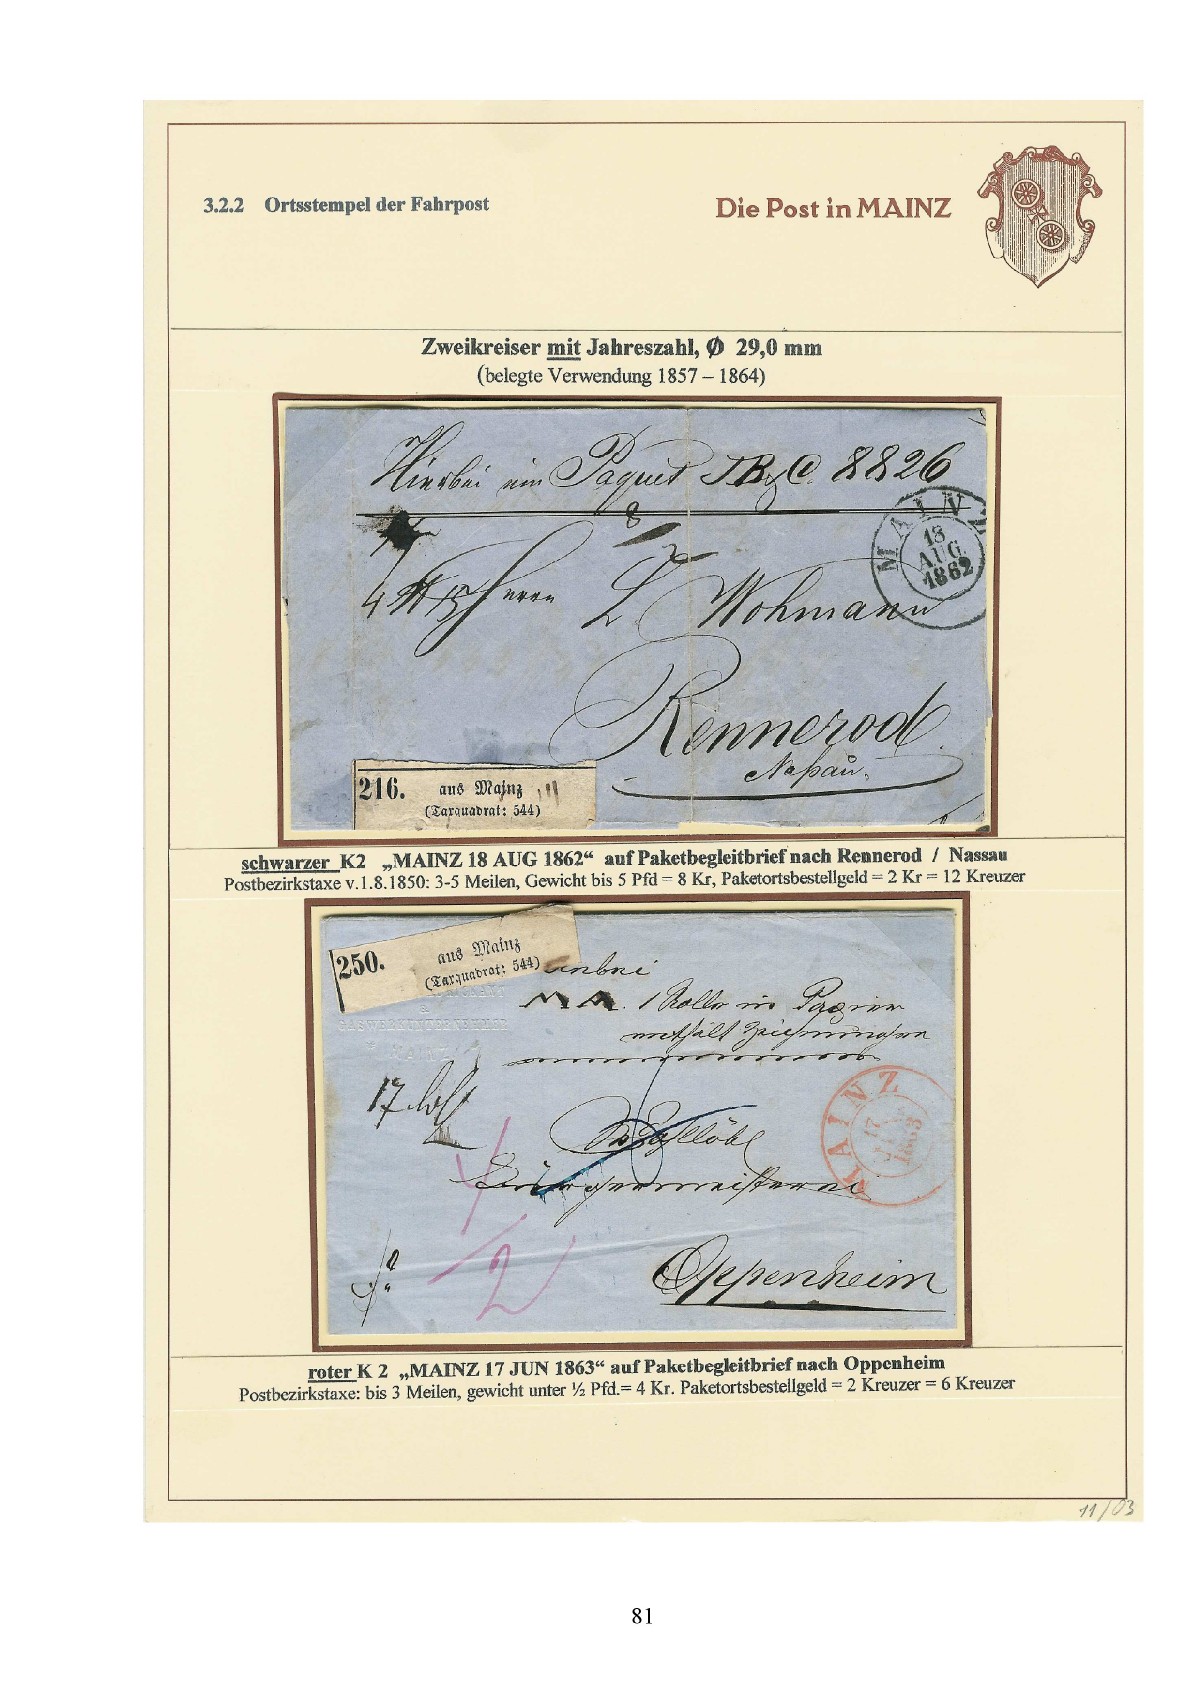 3.2.2 Ortsstempel der Fahrpost
Die Post in MAINZ
Zweikreiser mit Jahreszahl, Ø 29,0 mm
(belegte Verwendung 1857 – 1864)
Hierbei ein Paquet 8826
8
MAINZ
18
AUG.
1862
Herrn L Wohmann
Rennerod
Naßau.
216. aus Mainz
(Taxquadrat: 544)
schwarzer K2 „MAINZ 18 AUG 1862“ auf Paketbegleitbrief nach Rennerod / Nassau
Postbezirkstaxe v.1.8.1850: 3-5 Meilen, Gewicht bis 5 Pfd = 8 Kr, Paketortsbestellgeld = 2 Kr = 12 Kreuzer
250. aus Mainz
(Taxquadrat: 544)
anbei
MA. 1 Rolle in Papier
enthält Zeichnungen
GASWERKUNTERNEHMER
MAINZ
17
MAINZ
17
1863
Bürgermeisterei
Oppenheim
2
roter K 2 „MAINZ 17 JUN 1863“ auf Paketbegleitbrief nach Oppenheim
Postbezirkstaxe: bis 3 Meilen, gewicht unter ½ Pfd.= 4 Kr. Paketortsbestellgeld = 2 Kreuzer = 6 Kreuzer
11/03
81